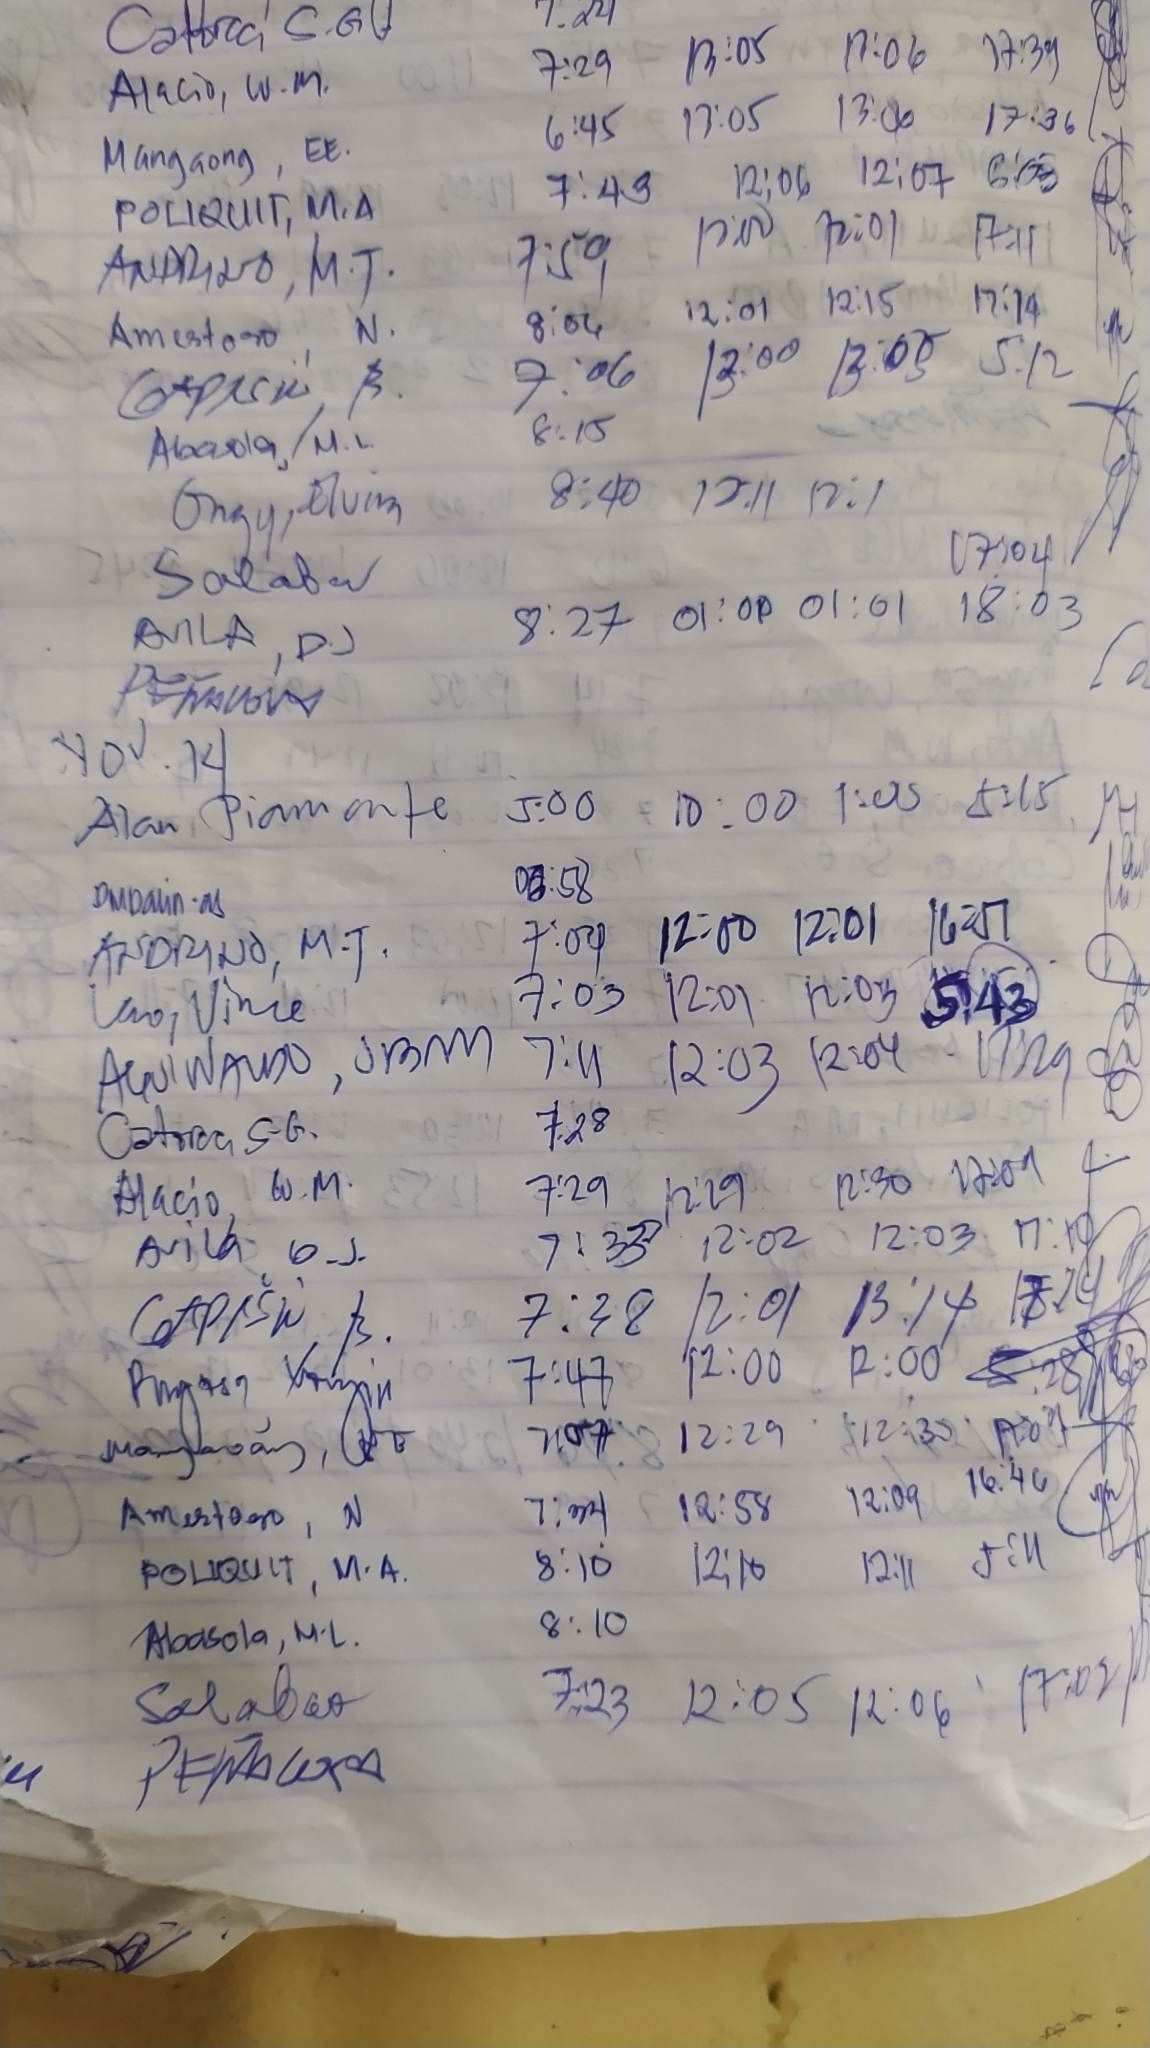 Catorce S.G. 7:24
Alacio, W.M. 7:29 13:05 13:06 17:39
Mangaong, EE. 6:45 13:05 13:06 17:36
POLIQUIT, M.A 7:43 12:06 12:07
ANDRINO, M.T. 7:59 12:00 12:01 17:11
Amestoso, N. 8:04 12:01 12:15 17:14
GAPISIN, B. 7:06 13:00 13:05 5:12
Abasola, M.L. 8:15
Ongy, Elvira 8:40 12:11
Salabao 17:04
AVILA, DJ 8:27 01:00 01:01 18:03
PEÑALORA
NOV. 14
Alan Piamonte 5:00 10:00 1:05 5:15
:58
ANDRINO, M.T. 7:04 12:00 12:01
Lao, Vince 7:03 12:01 12:03 5:43
AGUINALDO, JBMM 7:11 12:03 12:04 17:29
Catorce S.G. 7:28
Alacio, W.M. 7:29 12:29 12:30 17:09
Avila D.J. 12:02 12:03
GAPISIN, B. 7:38 12:01 13:14
7:47 12:00 12:00 5:28
Mangaong, EE 7:07 12:29 12:30
Amestoso, N 12:58 12:09 16:46
POLIQUIT, M.A. 8:10 12:10 12:11 5:11
Abasola, M.L. 8:10
Salabao 7:23 12:05 12:06 17:02
PEÑALORA